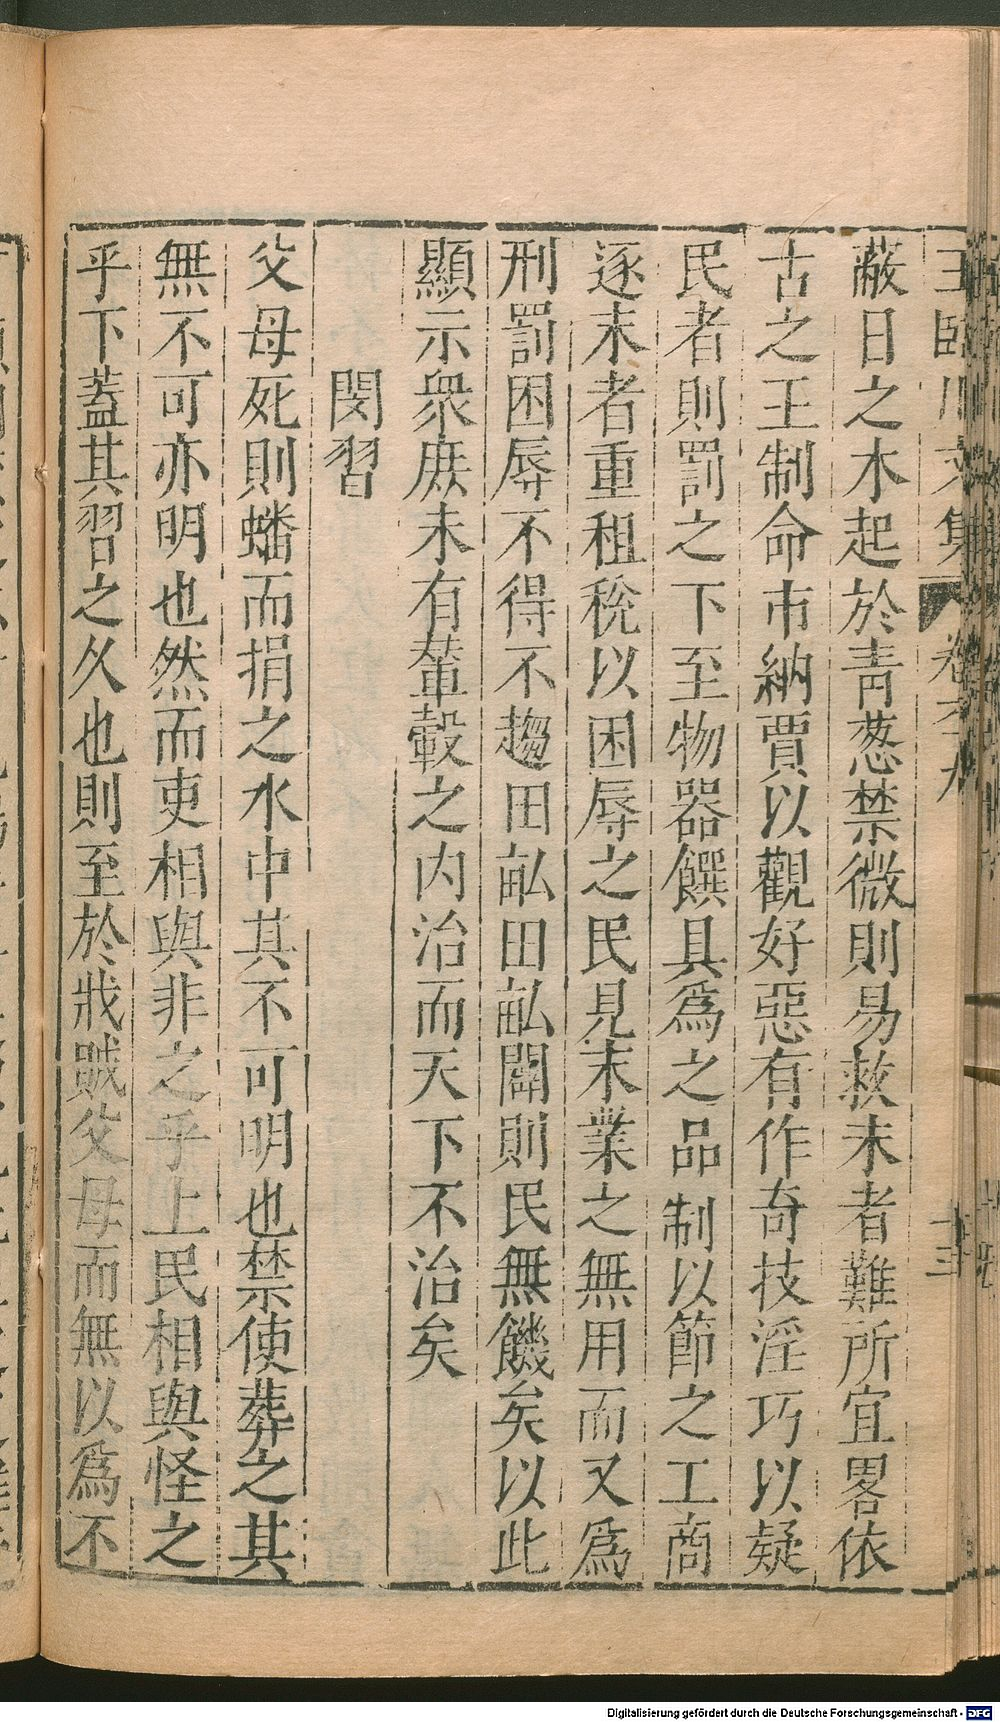 王臨川文集 卷六十九 十三
蔽日之木起於青葱禁微則易救末者難所宜畧依
古之王制命市納賈以觀好惡有作奇技淫巧以疑
民者則罰之下至物器饌具爲之品制以節之工商
逐末者重租稅以困辱之民見末業之無用而又爲
刑罰困辱不得不趨田畝田畝闢則民無饑矣以此
顯示衆庶未有輦轂之内治而天下不治矣
閔習
父母死則燔而捐之水中其不可明也禁使葬之其
無不可亦明也然而吏相與非之乎上民相與怪之
乎下蓋其習之久也則至於戕賊父母而無以爲不
Digitalisierung gefördert durch die Deutsche Forschungsgemeinschaft - DFG